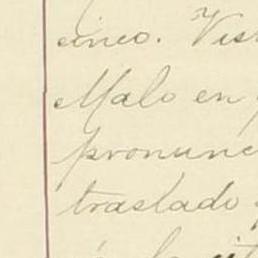 cinco. Vis
Malo en
pronunc
traslado